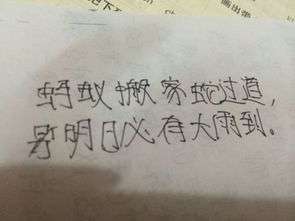 画出带
蚂蚁搬家蛇过道,
明日必有大雨到。